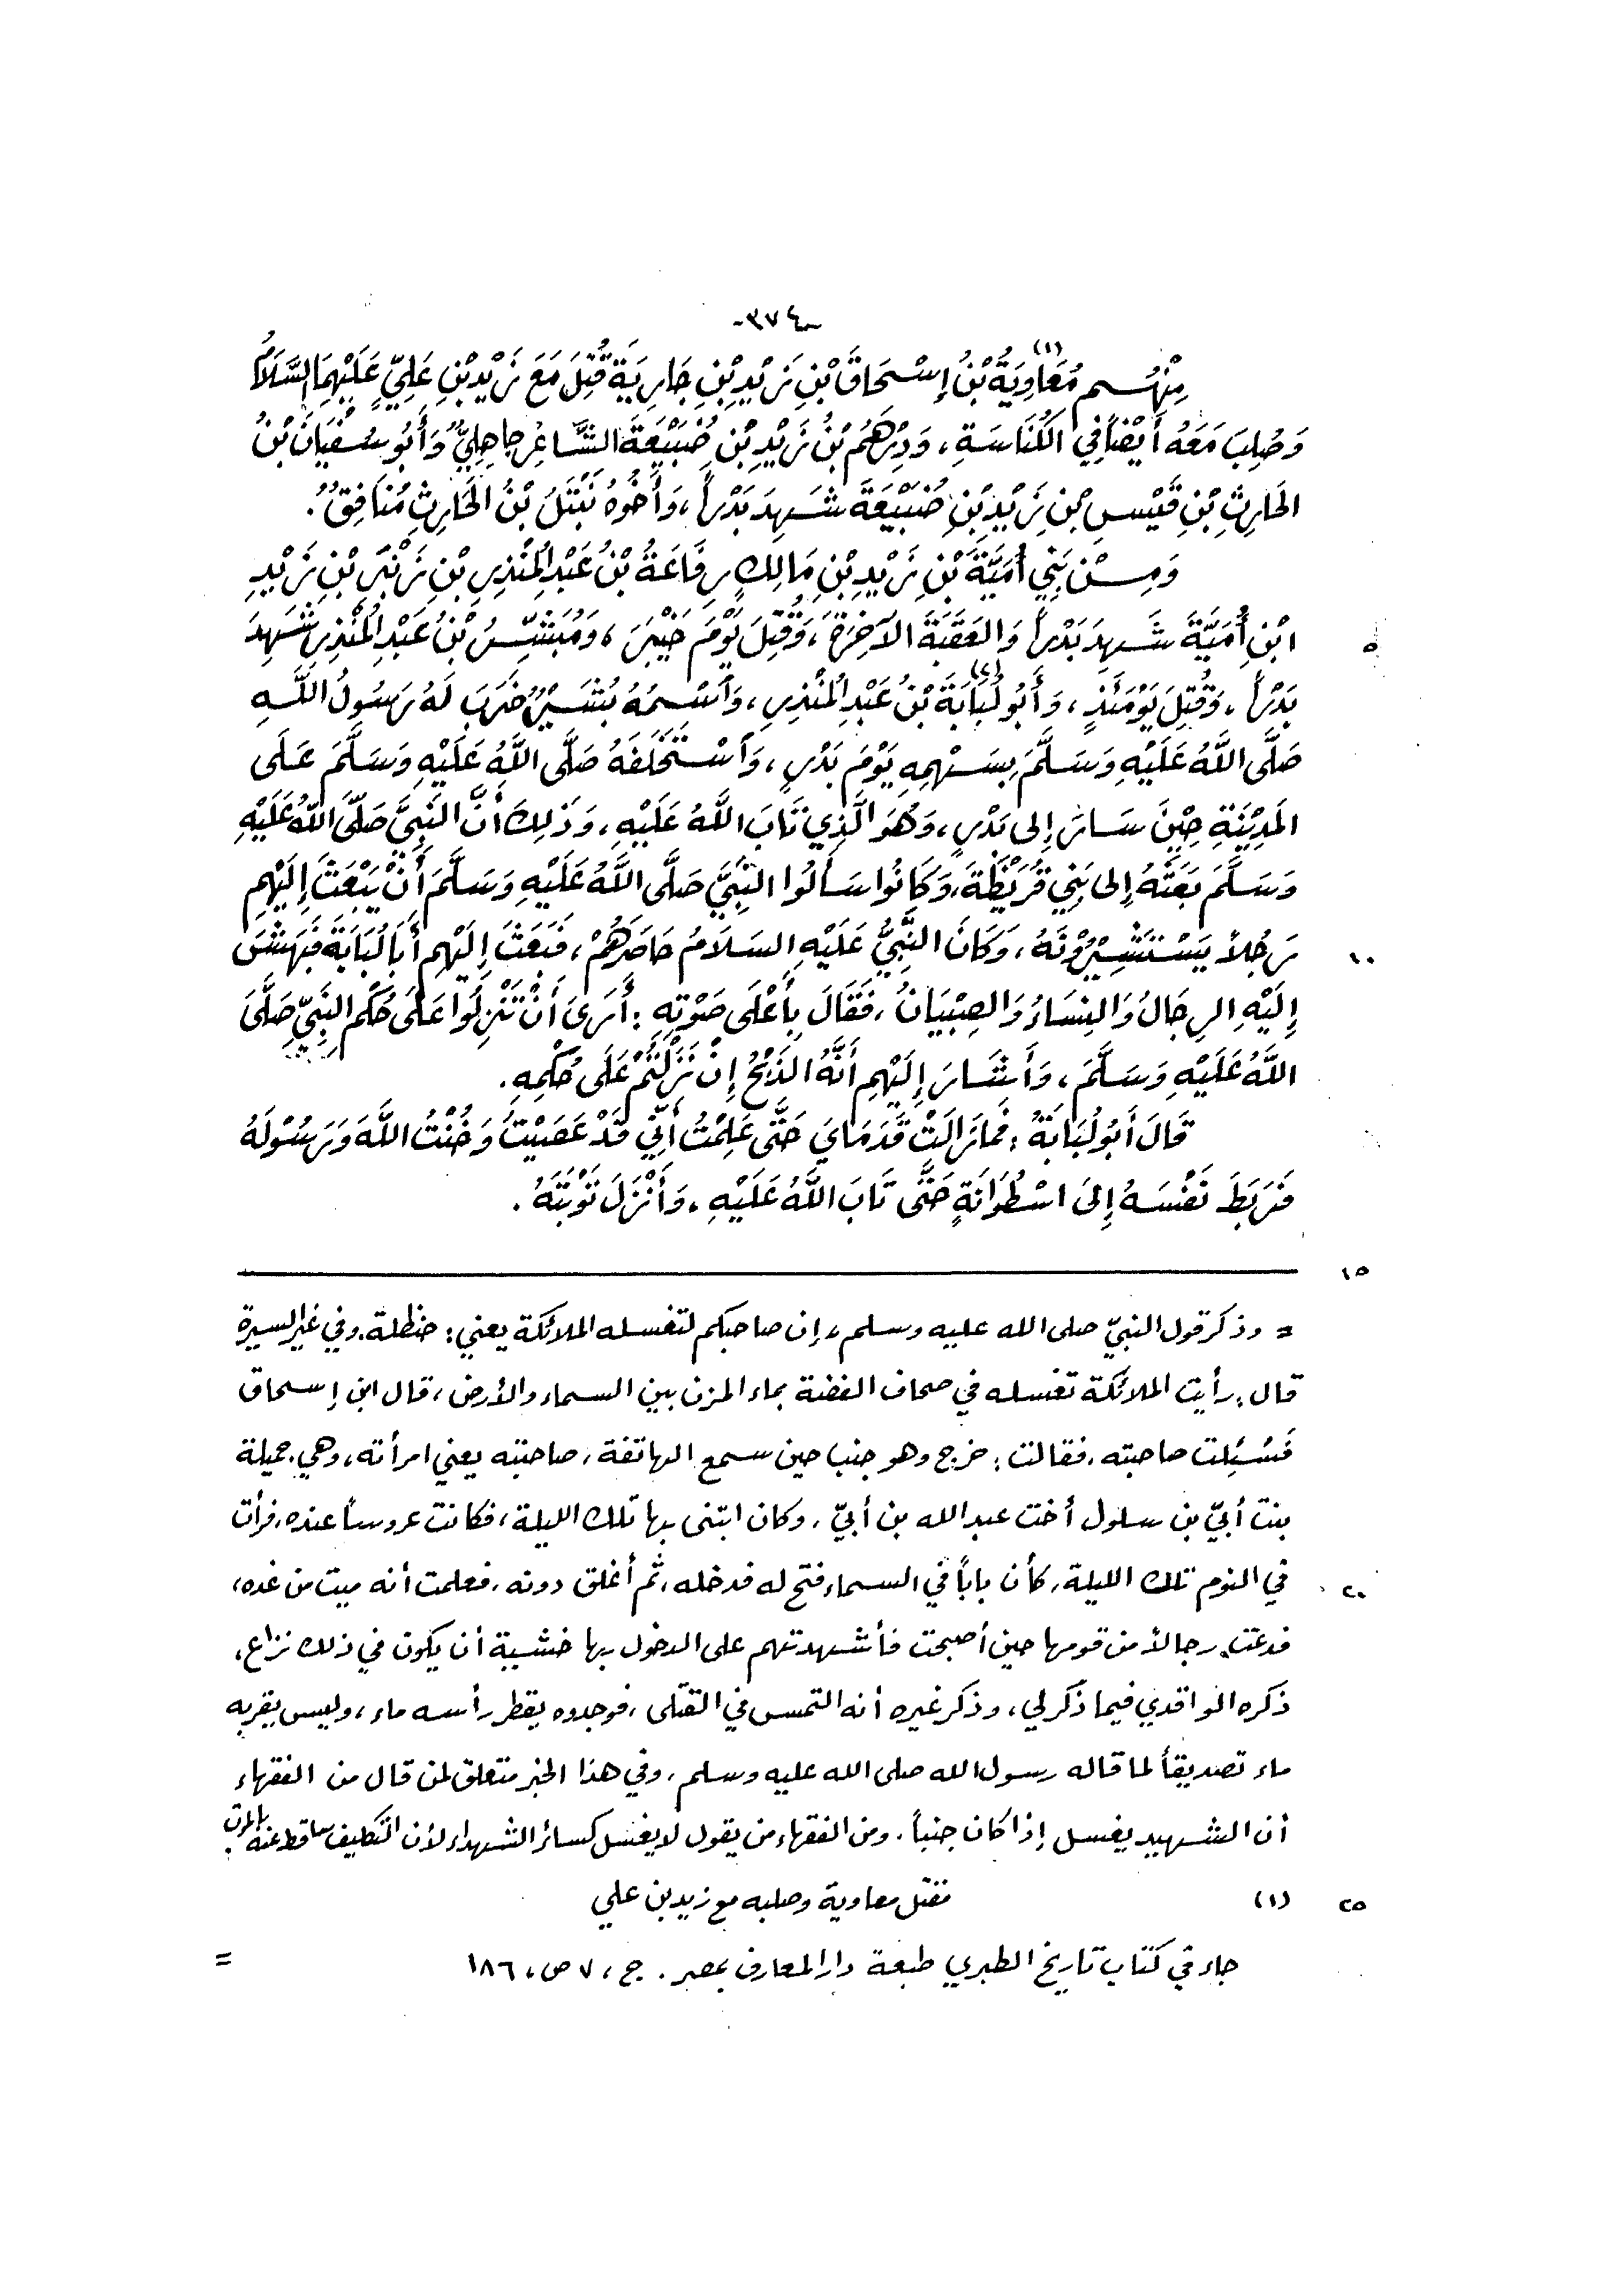 -٣٧٤-
مِنْهُم مُعَاوِيَةُ(١) بْنُ إِسْحَاقَ بْنِ زَيْدِ بْنِ جَارِيَةَ قُتِلَ مَعَ زَيْدِ بْنِ عَلِيٍّ عَلَيْهِمَا السَّلَامُ
وَصُلِبَ مَعَهُ أَيْضاً فِي الكُنَاسَةِ، وَدِرْهَمُ بْنُ زَيْدِ بْنِ ضُبَيْعَةَ الشَّاعِرُ جَاهِلِيٌّ وَأَبُو سُفْيَانَ بْنُ
الحَارِثِ بْنِ قَيْسِ بْنِ زَيْدِ بْنِ ضُبَيْعَةَ شَهِدَ بَدْراً، وَأَخُوهُ نَبْتَلُ بْنُ الحَارِثِ مُنَافِقٌ.
وَمِنْ بَنِي أُمَيَّةَ بْنِ زَيْدِ بْنِ مَالِكٍ رِفَاعَةُ بْنُ عَبْدِ المُنْذِرِ بْنِ زَنْبَرِ بْنِ زَيْدِ
٥ ابْنِ أُمَيَّةَ شَهِدَ بَدْراً وَالعَقَبَةَ الآخِرَةَ، وَقُتِلَ يَوْمَ خَيْبَرَ، وَمُبَشِّرُ بْنُ عَبْدِ المُنْذِرِ شَهِدَ
بَدْراً، وَقُتِلَ يَوْمَئِذٍ، وَأَبُو لُبَابَةَ(٢) بْنُ عَبْدِ المُنْذِرِ، وَاسْمُهُ بُشَيْرٌ ضَرَبَ لَهُ رَسُولُ اللَّهِ
صَلَّى اللَّهُ عَلَيْهِ وَسَلَّمَ بِسَهْمِهِ يَوْمَ بَدْرٍ، وَاسْتَخْلَفَهُ صَلَّى اللَّهُ عَلَيْهِ وَسَلَّمَ عَلَى
المَدِيْنَةِ حِيْنَ سَارَ إِلى بَدْرٍ، وَهُوَ الَّذِي تَابَ اللَّهُ عَلَيْهِ، وَذَلِكَ أَنَّ النَّبِيَّ صَلَّى اللَّهُ عَلَيْهِ
وَسَلَّمَ بَعَثَهُ إِلى بَنِي قُرَيْظَةَ، وَكَانُوا سَأَلُوا النَّبِيَّ صَلَّى اللَّهُ عَلَيْهِ وَسَلَّمَ أَنْ يَبْعَثَ إِلَيْهِم
١٠ رَجُلاً يَسْتَشِيْرُوْنَهُ، وَكَانَ النَّبِيُّ عَلَيْهِ السَلَامُ حَاصَرَهُمْ، فَبَعَثَ إِلَيْهِم أَبَا لُبَابَةَ فَبَهَشَ
إِلَيْهِ الرِجَالُ وَالنِسَاءُ وَالصِبْيَانُ، فَقَالَ بِأَعْلَى صَوْتِهِ: أَرَى أَنْ تَنْزِلُوا عَلَى حُكْمِ النَّبِيِّ صَلَّى
اللَّهُ عَلَيْهِ وَسَلَّمَ، وَأَشَارَ إِلَيْهِم أَنَّهُ الذَبْحُ إِنْ نَزَلْتُمْ عَلَى حُكْمِهِ.
قَالَ أَبُو لُبَابَةَ: فَمَا زَالَتْ قَدَمَايَ حَتَّى عَلِمْتُ أَنِّي قَدْ عَصَيْتُ وَخُنْتُ اللَّهَ وَرَسُوْلَهُ
فَرَبَطَ نَفْسَهُ إِلَى اسْطُوَانَةٍ حَتَّى تَابَ اللَّهُ عَلَيْهِ، وَأَنْزَلَ تَوْبَتَهُ.
١٥
= وذكر قول النبيّ صلى الله عليه وسلم، إن صاحبكم لتغسله الملائكة يعني: حنظلة، وفي غير السيرة
قال: رأيت الملائكة تغسله في صحاف الفضة بماء المزن بين السماء والأرض، قال ابن إسحاق
فَسُئِلت صاحبته، فقالت: خرج وهو جنب حين سمع الهاتفة، صاحبته يعني امرأته، وهي جميلة
بنت أبيّ بن سلول أخت عبدالله بن أبيّ، وكان ابتنى بها تلك الليلة، فكانت عروساً عنده، فرأت
٢٠ في النوم تلك الليلة، كأن باباً في السماء فتح له فدخله، ثم أغلق دونه، فعلمت أنه ميت من غده،
فدعت رجالاً من قومها حين أصبحت فأشهدتهم على الدخول بها خشية أن يكون في ذلك نزاع،
ذكره الواقدي فيما ذكر لي، وذكر غيره أنه التمس في القتلى، فوجدوه يقطر رأسه ماء، وليس بقربه
ماء تصديقاً لما قاله رسول الله صلى الله عليه وسلم، وفي هذا الخبر متعلق لمن قال من الفقهاء
أن الشهيد يغسل إذا كان جنباً. ومن الفقهاء من يقول لا يغسل كسائر الشهداء لأن التكليف ساقط عنه بالموت.
٢٥ (١) مقتل معاوية وصلبه مع زيد بن علي
جاء في كتاب تاريخ الطبري طبعة دار المعارف بمصر. ج، ٧ ص، ١٨٦ =